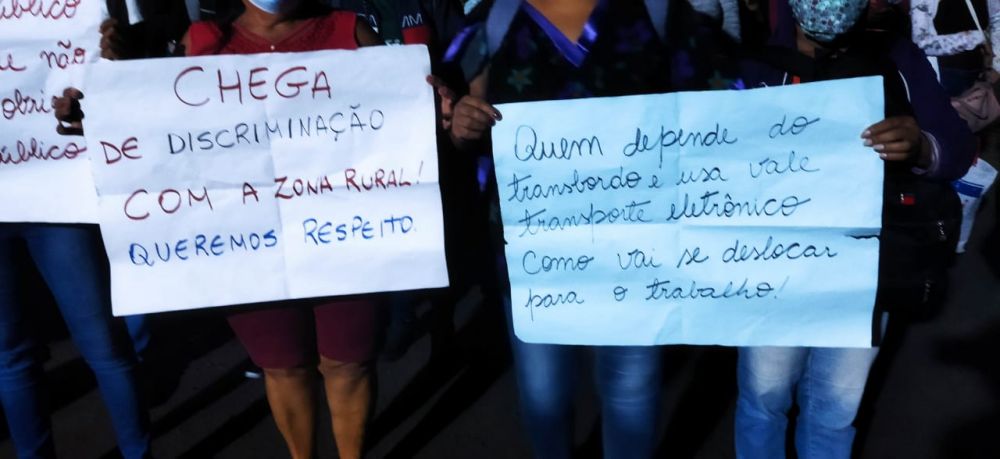 úblico
não
obri
úblico
CHEGA
DE DISCRIMINAÇÃO
COM A ZONA RURAL!
QUEREMOS RESPEITO.
Quem depende do
transbordo e usa vale
transporte eletrônico
Como vai se deslocar
para o trabalho!